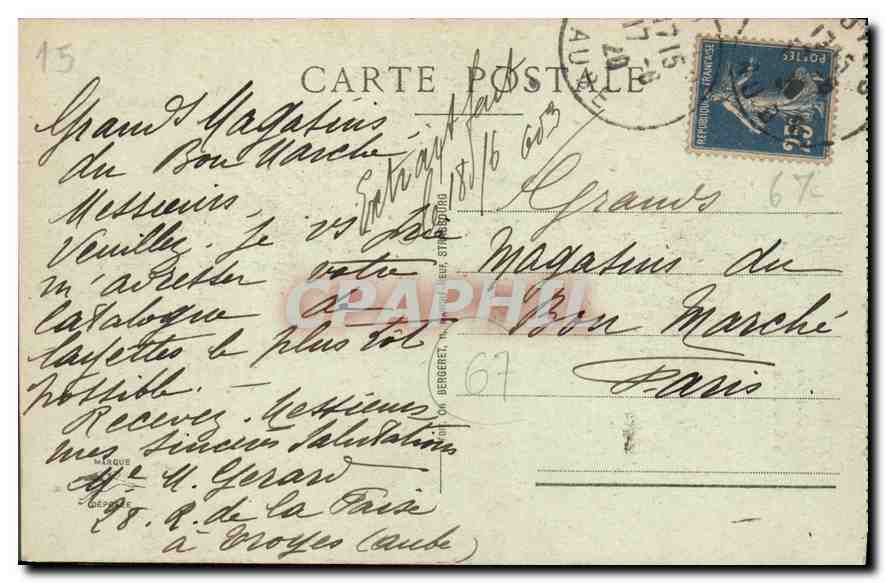 15
CARTE POSTALE
Grands Magasins
du Bon Marché
Messieurs,
Veuillez. Je vs prie
m'adresser votre
catalogue de
layettes le plus tôt
possible. —
Recevez. Messieurs
mes sincères salutations
Me M. Gerard
28. R. de la Paix
à Troyes (Aube)
MARQUE
DÉPOSÉE
Extrait fait
le 18/6 603
BERGERET, STRASBOURG
AUBE
17 15
17 -6
20
REPUBLIQUE FRANÇAISE
POSTES
25c
67c
Grands
Magasins du
Bon Marché
Paris
67
CPARHU